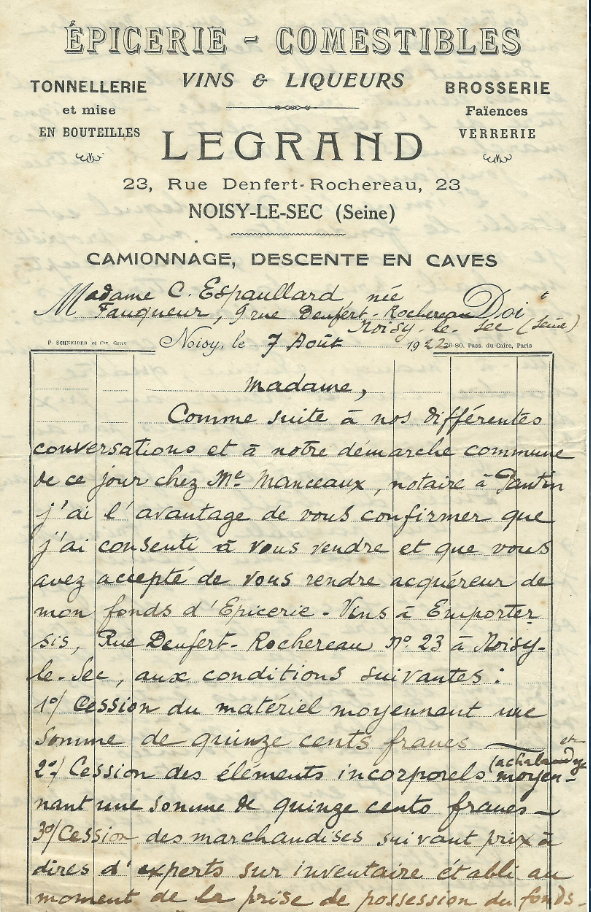 ÉPICERIE - COMESTIBLES
VINS & LIQUEURS
TONNELLERIE
et mise
EN BOUTEILLES
BROSSERIE
Faïences
VERRERIE
LEGRAND
23, Rue Denfert-Rochereau, 23
NOISY-LE-SEC (Seine)
CAMIONNAGE, DESCENTE EN CAVES
Madame C. Espaullard, née
Fauqueur, 9 rue Denfert-Rochereau Doit
Noisy-le-Sec (Seine)
Noisy, le 7 Août 1922
80, Pass. du Caire, Paris
Madame,
Comme suite à nos différentes
conversations et à notre démarche commune
de ce jour chez Me Manceaux, notaire à Pantin
j'ai l'avantage de vous confirmer que
j'ai consenti à vous vendre et que vous
avez accepté de vous rendre acquéreur de
mon fonds d'Epicerie - Vins à Emporter
sis, Rue Denfert-Rochereau no 23 à Noisy-
le-Sec, aux conditions suivantes :
1o/ Cession du matériel moyennent une
somme de quinze cents francs
2o/ Cession des éléments incorporels (et achalandage moyen-
nant une somme de quinze cents francs -
3o/ Cession des marchandises suivant prix à
dires d'experts sur inventaire établi au
moment de la prise de possession du fonds.